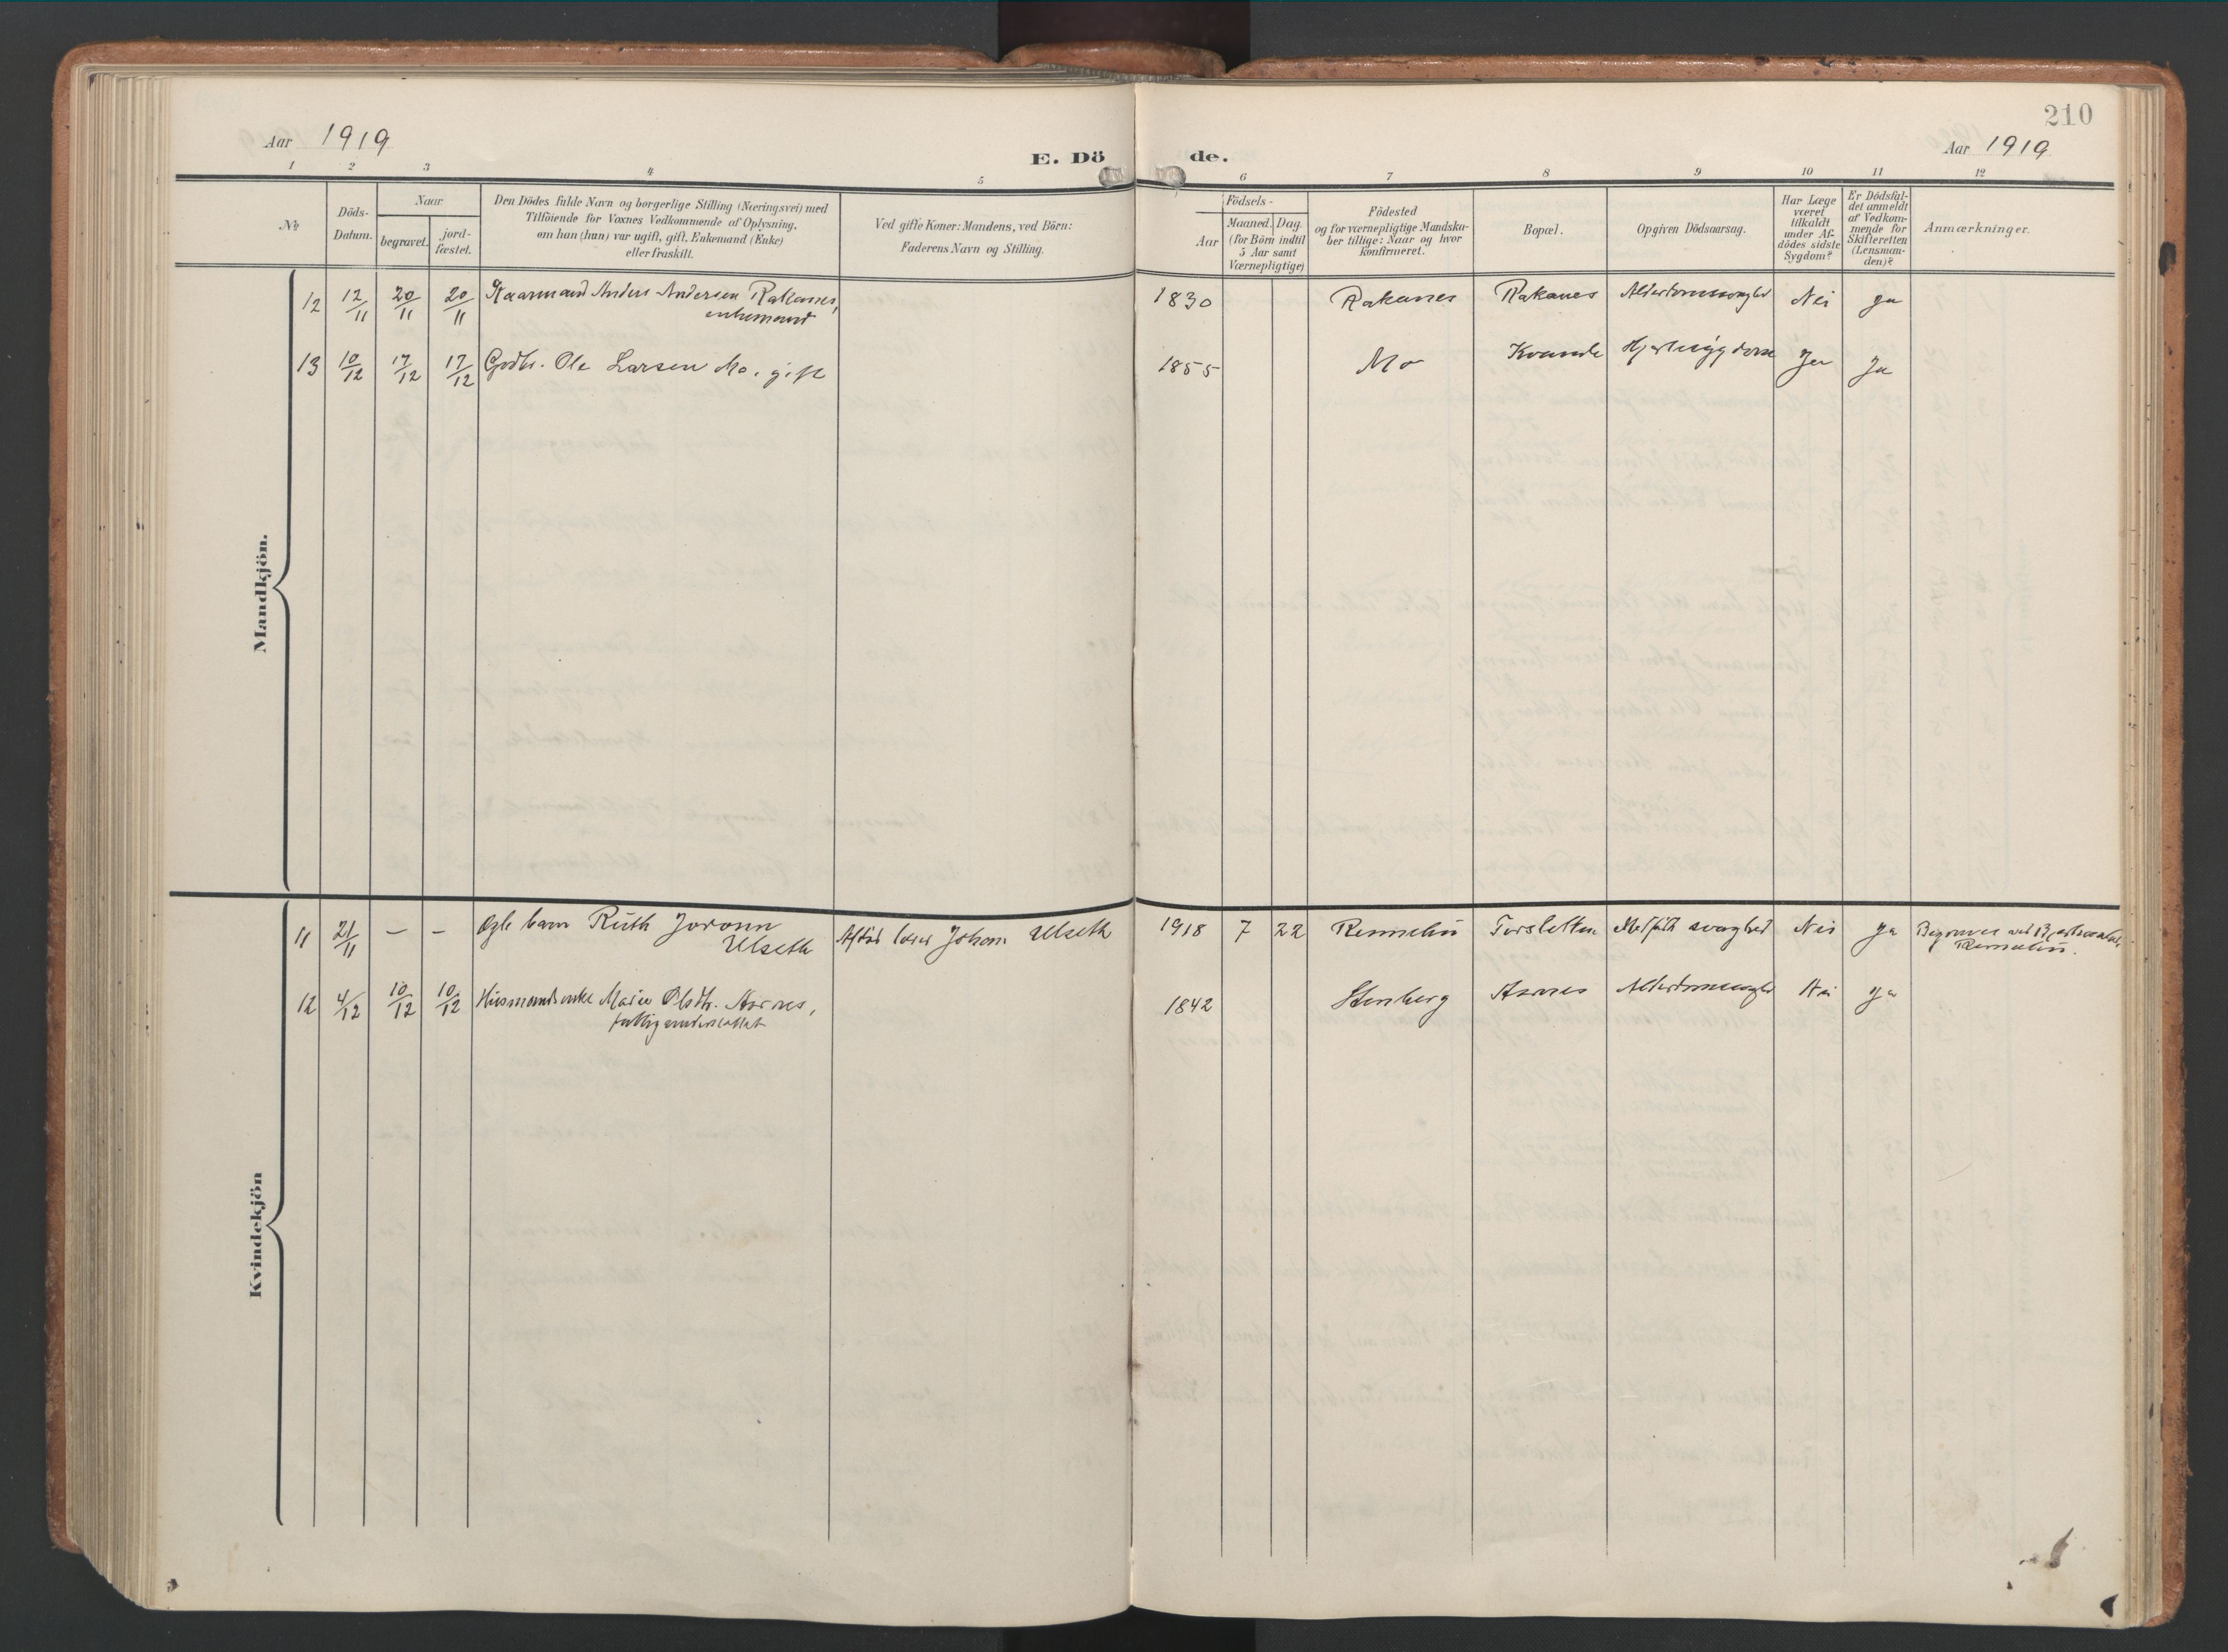 210
Aar 1919
E. Dö de.
Aar 1919
1 2 3 4 5 6 7 8 9 10 11 12
No
Döds-
Datum.
Naar
begravet.
jord-
fæstet.
Den Dödes fulde Navn og borgerlige Stilling (Næringsvei) med
Tilföiende for Voxnes Vedkommende af Oplysning,
om han (hun) var ugift, gift, Enkemand (Enke)
eller fraskilt.
Ved gifte Koner: Mandens, ved Börn:
Faderens Navn og Stilling.
Födsels-
Aar
Maaned. Dag.
(for Börn indtil
5 Aar samt
Værnepligtige)
Födested
og for værnepligtige Mandska-
ber tillige: Naar og hvor
konfirmeret.
Bopæl.
Opgiven Dödsaarsag.
Har Læge
været
tilkaldt
under Af-
dödes sidste
Sygdom?
Er Dödsfal-
det anmeldt
af Vedkom-
mende for
Skifteretten
(Lensman-
den)?
Anmærkninger.
Mandkjön.
12 12/11 20/11 20/11 Kaarmand Anders Andersen Rakanes, 1830 Rakanes Rakanes Alderdomssvaghed Nei Ja
enkemand
13 10/12 17/12 17/12 Gbr. Ole Larsen Mo, gift 1855 Mo Kvande Hjertesygdom Ja Ja
Kvindekjön
11 21/11 - - Ægte barn Ruth Jorunn Johan Ulseth 1918 7 22 Rennebu Torsletten Medfödt svaghed Nei Ja Begraves ved
Ulseth Rennebu.
12 4/12 10/12 10/12 Husmandsenke Marie Olsdtr. Aasnes, 1842 Stenberg Aasnes Alderdomssvaghed Nei Ja
fattigunderstöttet